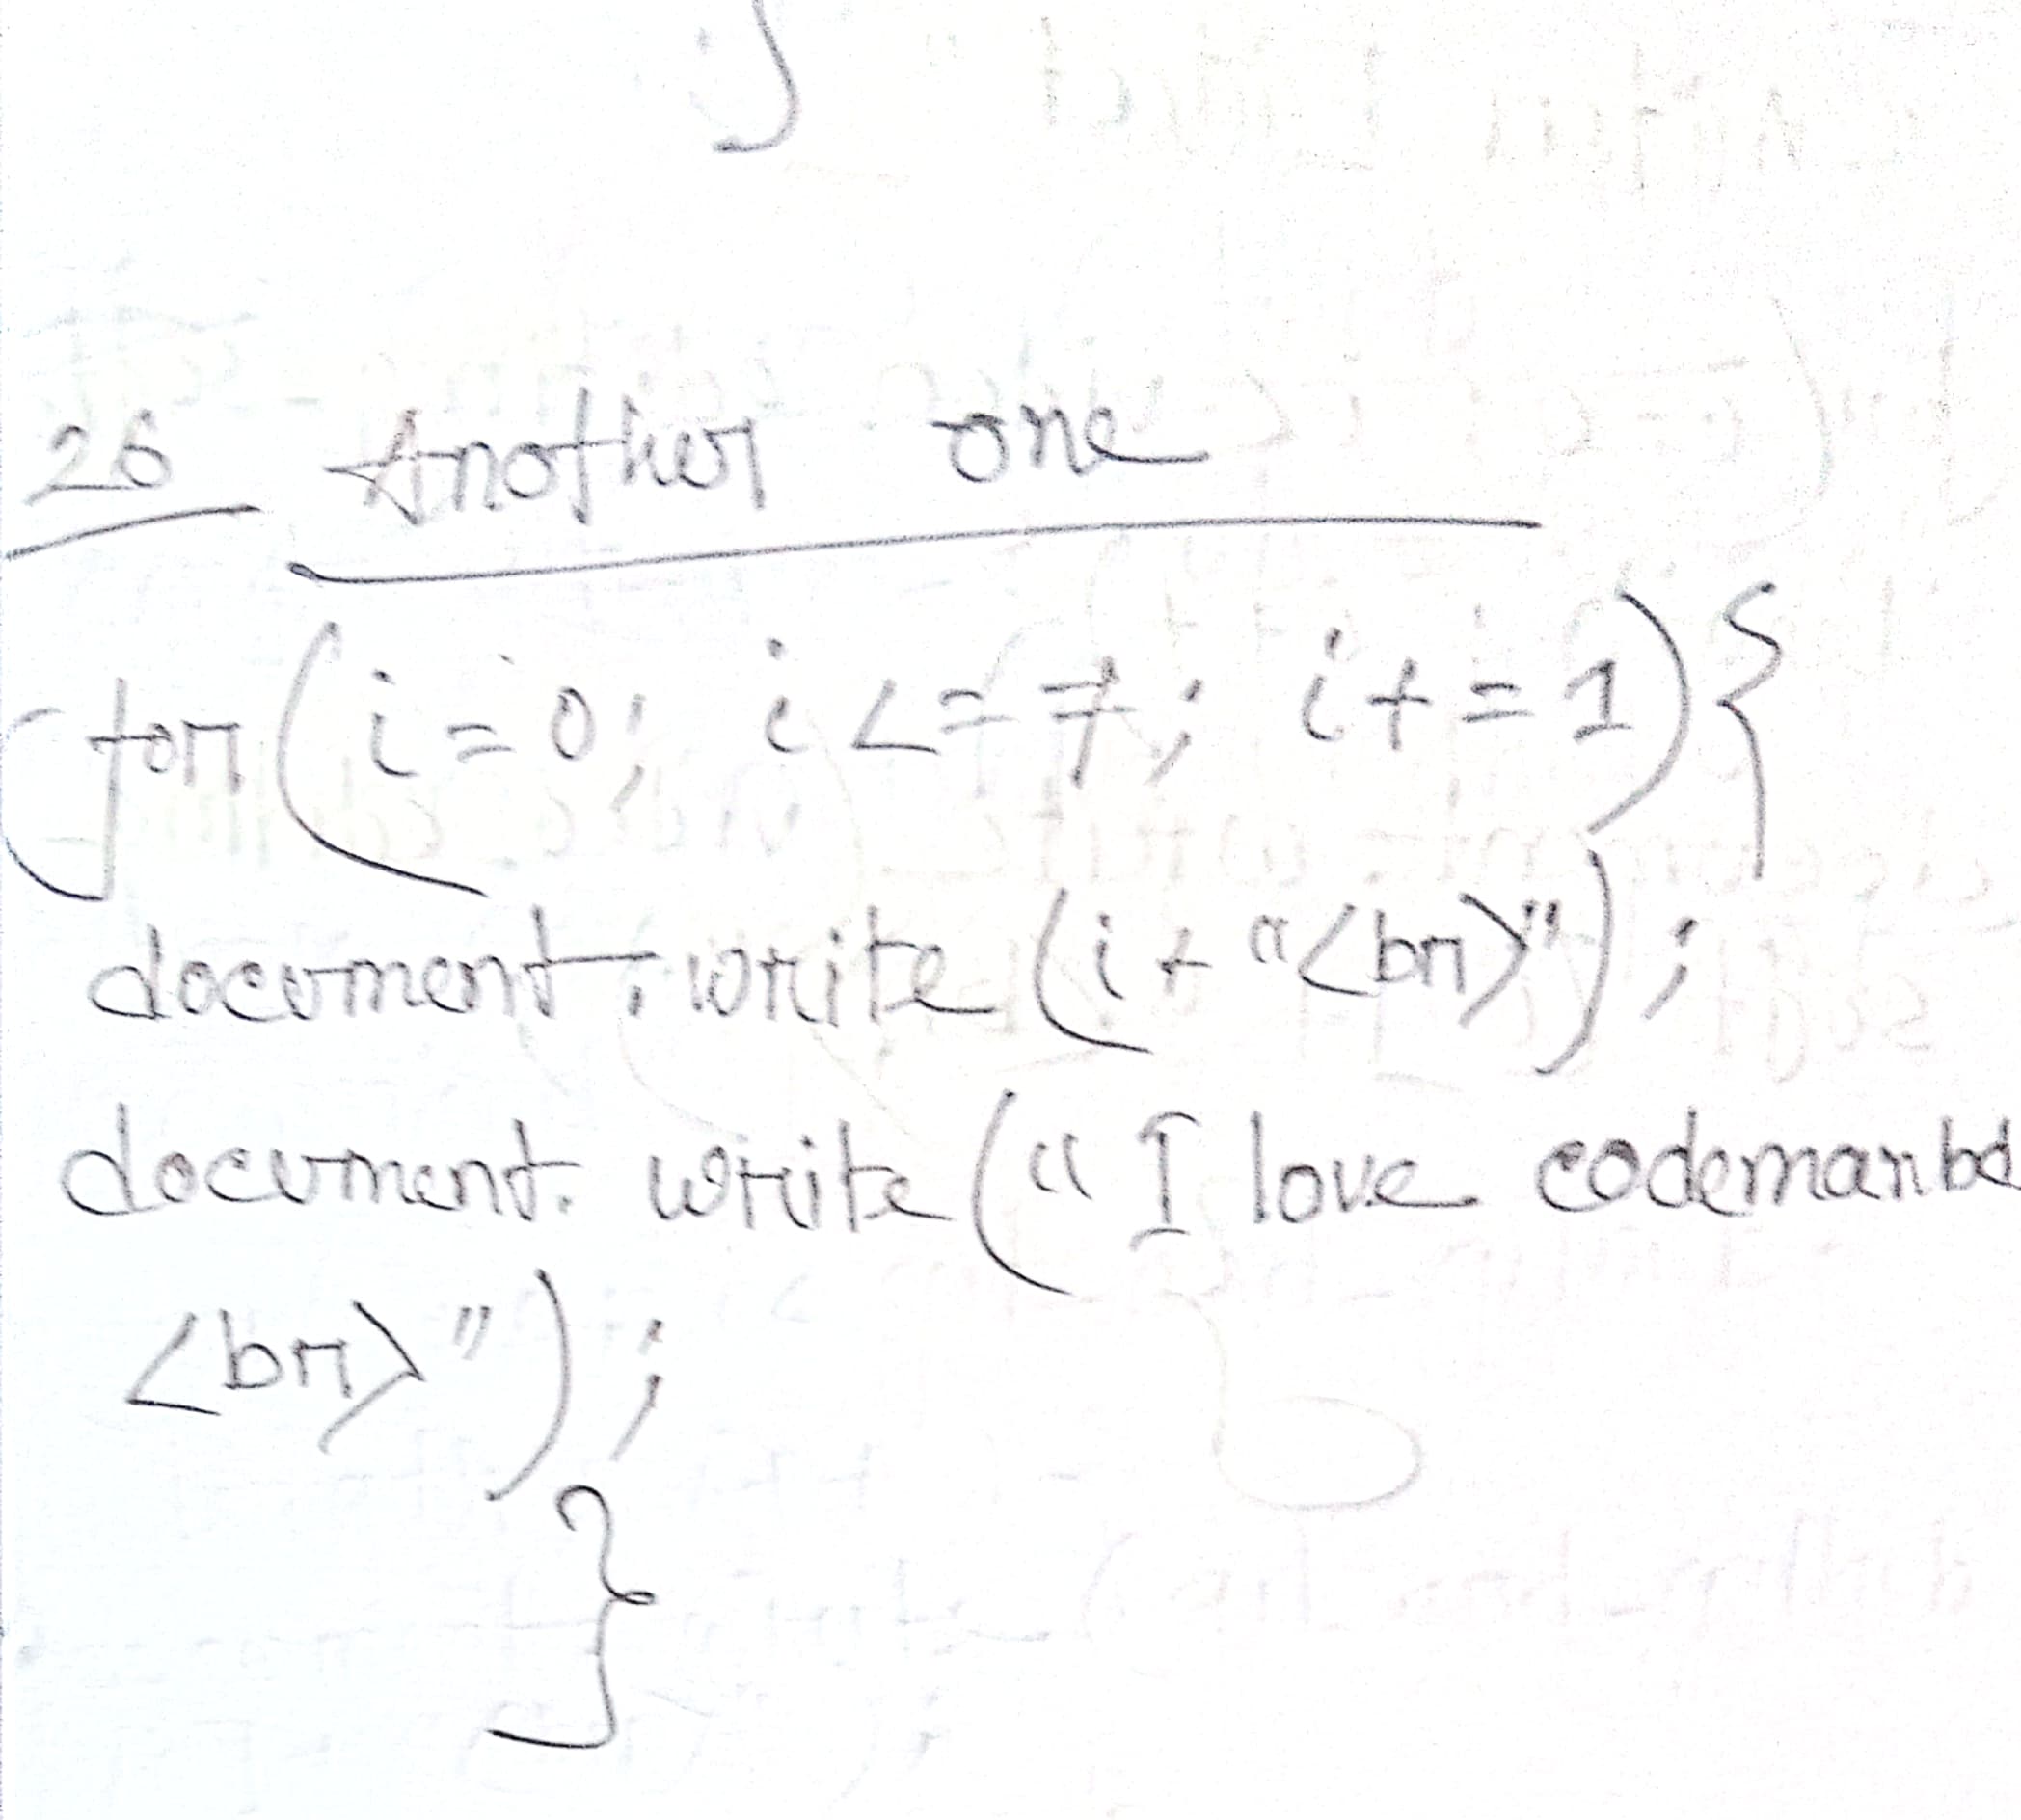 }
26 Another one
for(i=0; i<=7; i+=1){
document.write(i+"<br>");
document.write("I love codemanbd
<br>");
}